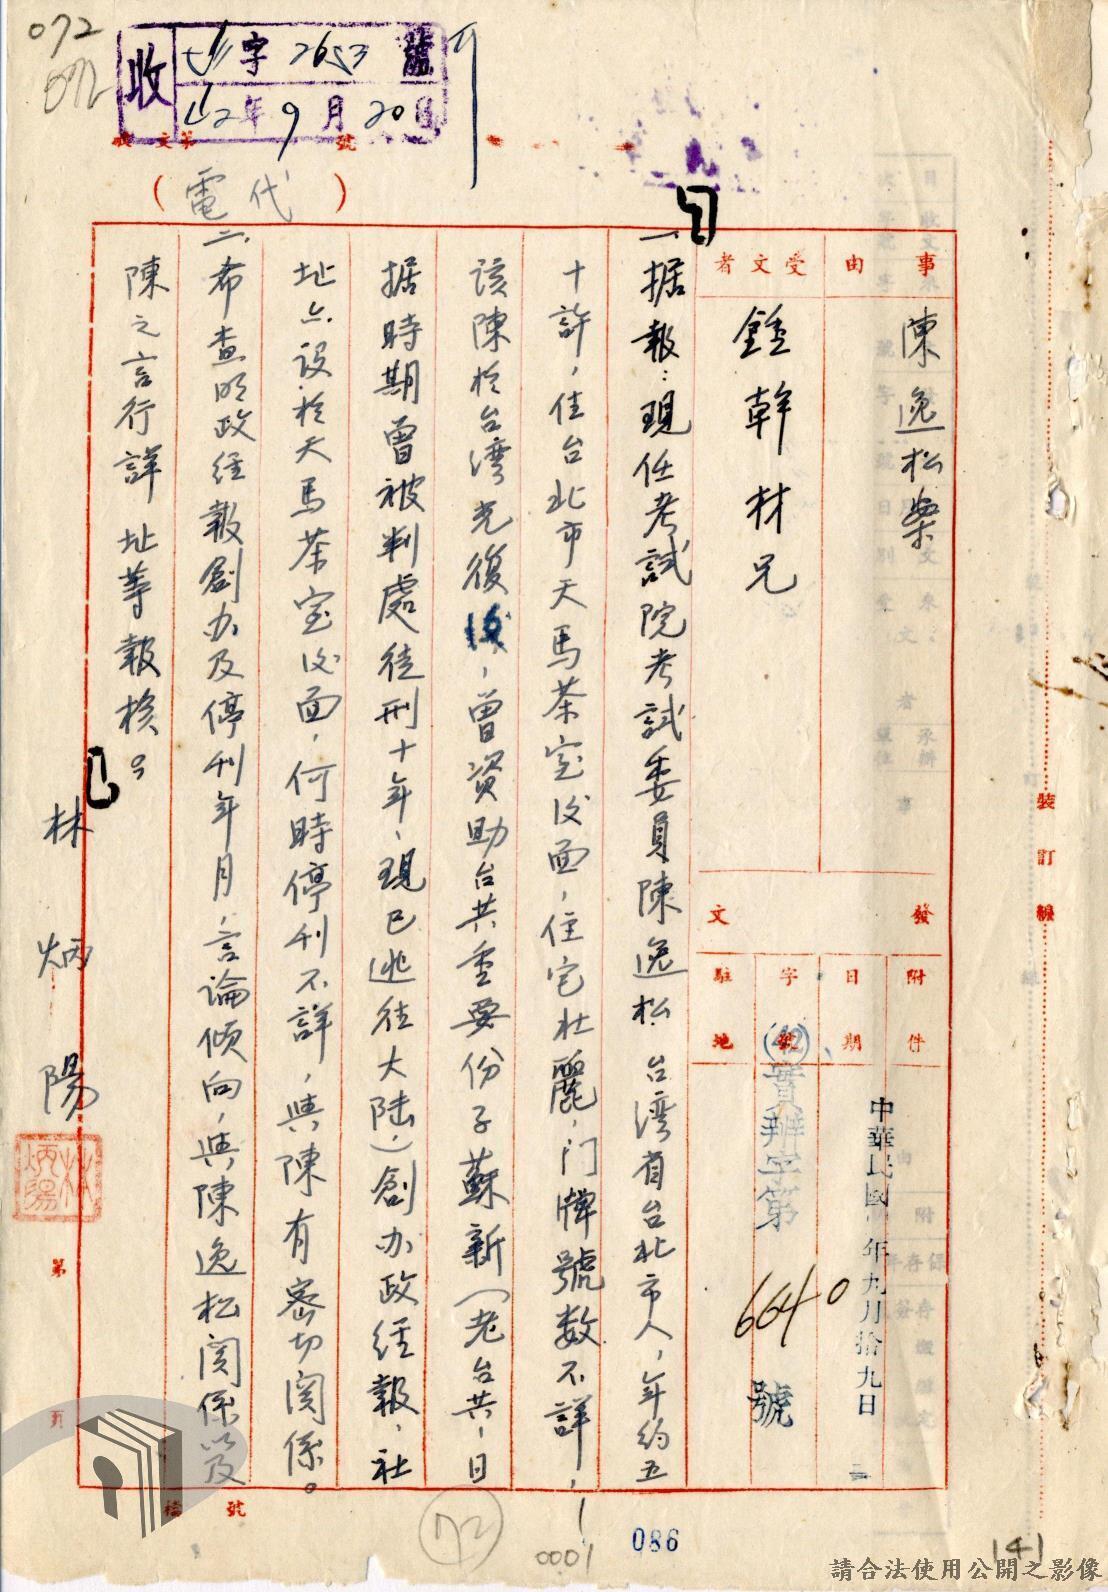 072
072
收 字2653號
42年9月20日
（代電）
事由
陳逸松案
受文者
鍾幹材兄
發文
附件
日期
中華民國 年九月拾九日
字號
(42)實辦字第6640號
駐地
一、据報：現任考試院考試委員陳逸松 台湾省台北市人，年約五
十許，住台北市天馬茶室後面，住宅壯麗，门牌號数不詳，
該陳於台湾光復後，曾資助台共重要份子蘇新（老台共，日
据時期曾被判處徒刑十年，現已逃往大陆，）創办政经報，社
址亦设於天馬茶室後面，何時停刊不詳，與陳有密切関係。
二、希查明政经報創办及停刊年月，言論傾向，與陳逸松関係以及
陳之言行詳址等報核。
林炳陽
林炳陽
裝訂線
第
頁
檔號
72
0001
086
141
請合法使用公開之影像